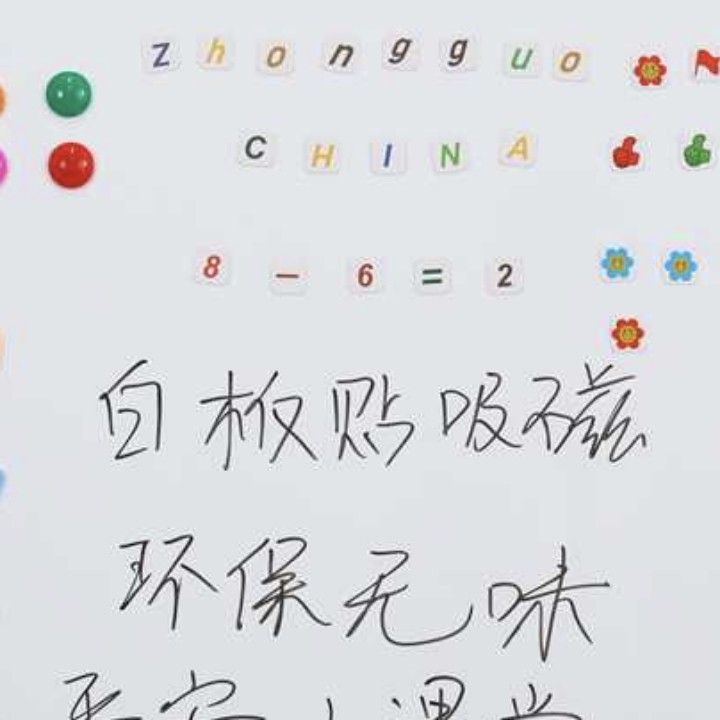 zhongguo
CHINA
8-6=2
白板贴吸磁
环保无味
平安小课堂